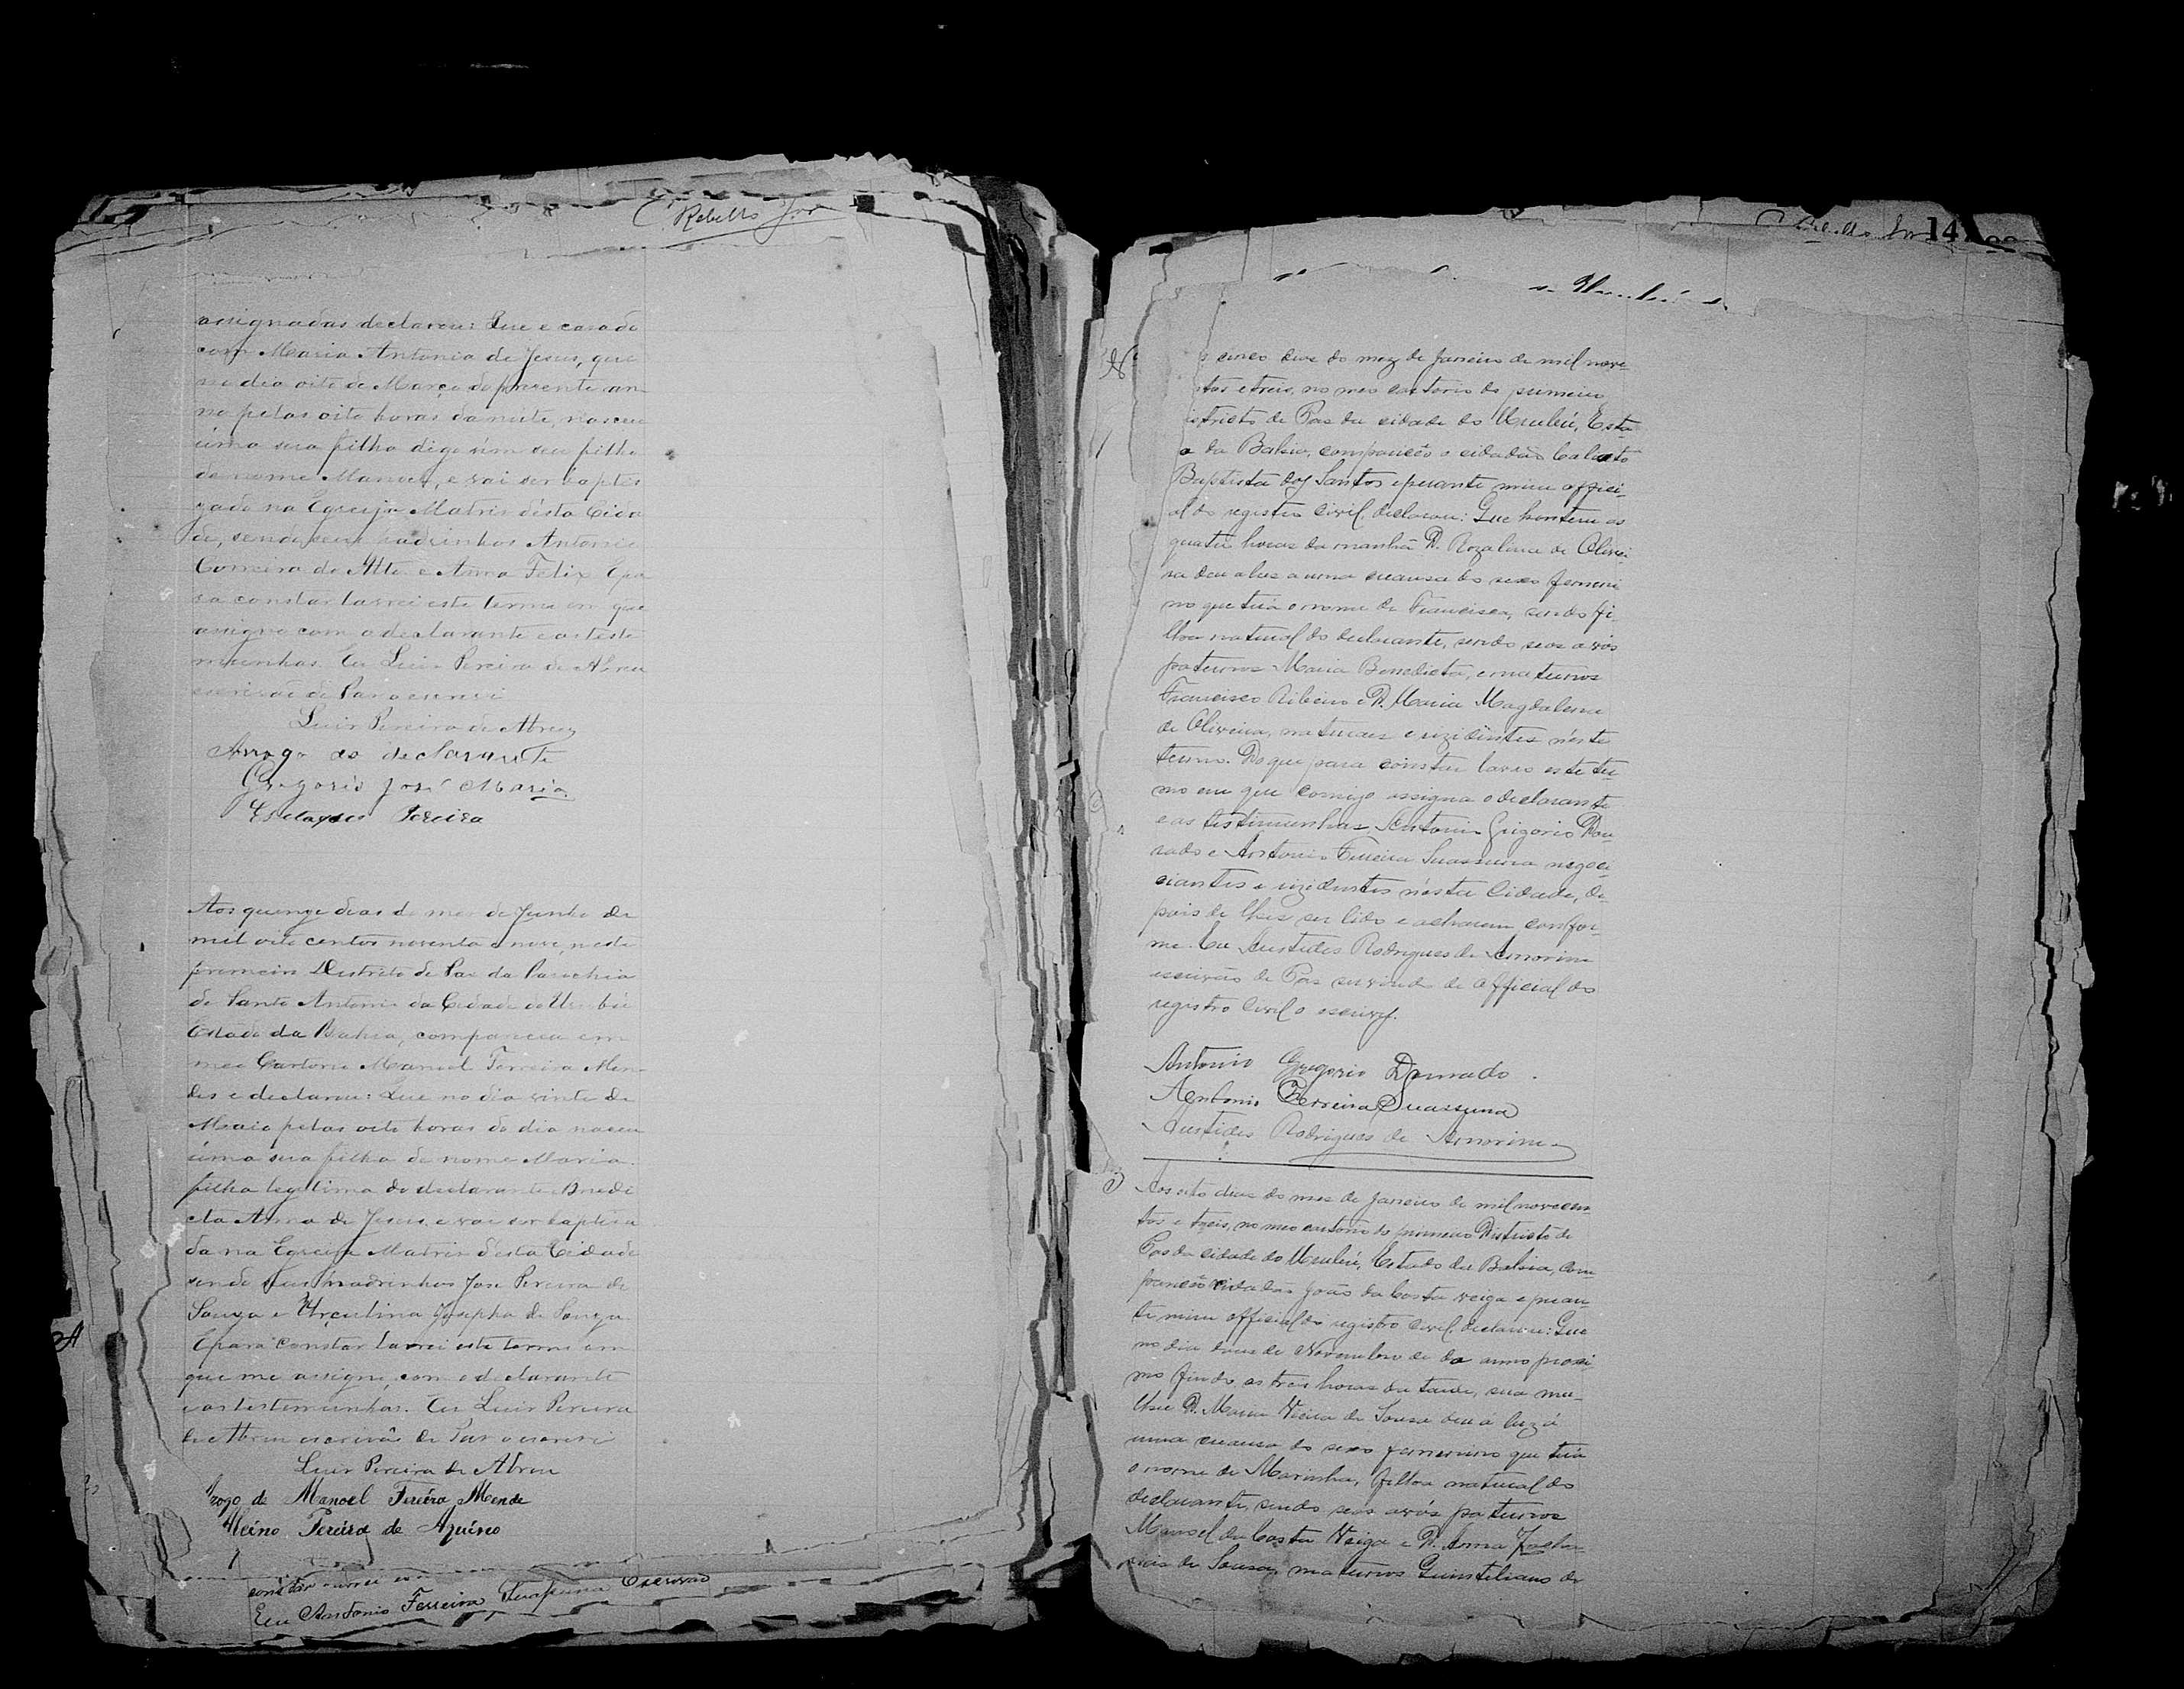 C. Rebello Jor
assignadas declarou: Que e casado
com Maria Antonia de Jesus, que
no dia oito de Março do presente an-
no pelas oito horas da noite, nasceu
uma sua filha digo um seu filho
de nome Manoel, e vai ser baptis
zado na Egreija Matris desta Cida
de, sendo seus padrinhos Antonio
Correira do Alto e Anna Felix Epa
ra constar lavrei este termo em que
assigno com o declarante e as teste
munhas. Eu Luis Pereira de Abreu
escrivão de Paz o escrevi
Luis Pereira de Abreu
Arrogo do declarante
Gregorio José Maria
Pereira
Aos quenze dias do mes de Junho de
mil oito centos noventa e nove, neste
premeiro Destrito de Paz da Parochia
de Santo Antonio da Cidade do Urubú
Estado da Bahia, compareceu em
meo Cartorio Manoel Ferreira Men-
des e declarou: Que no dia vinte de
Maio pelas oito horas do dia nasceu
uma sua filha de nome Maria
filha legitima do declarante Bnedi
cta Anna de Jesus, e vae ser baptisa
da na Egreija Matris d'esta Cidade
sendo seus padrinhos José Pereira de
Souza e Urculina Josepha de Souza
Epara constar lavrei este termo em
que me assigno, com o declarante
e as testemunhas. Eu Luis Pereira
de Abreu escrivão de Paz o escrevi
Luis Pereira de Abreu
rogo de Manoel Fereira Mende
Pereira de Aquino
constar
Eu Antonio Ferreira Suassuna Escrivão
14
s cinco dias do mez de Janeiro de mil nove-
ntos e treis, no meo cartorio do primeiro
istricto de Paz da cidade do Urubú, Esta-
o da Bahia, compareceo o cidadão Calixto
Baptista dos Santos e perante mim offici-
al do registro civil, declarou: Que hontem as
quatro horas da manhã D. Rozalina de Olivei-
ra deu a luz a uma creansa do sexo femeni
no que terá o nome de Francisca, sendo fi-
lha natural do declarante, sendo seos avós
paternos Maria Benedicta, e maternos
Francisco Ribeiro e D. Maria Magdalena
de Oliveira, naturaes e rezidentes n'este
termo. Do que para constar lavro este ter-
mo em que comigo assigna o declarante
e as testimunhas Antonio Grigorio Dou-
rado e Antonio Ferreira Suassuna negoci-
ciantes e rezidentes n'esta Cidade, de-
pois de lhes ser lido e acharem confor-
me. Eu Aristides Rodrigues de Amorim
escrivão de Paz servindo de official do
registro Civil o escrevy.
Antonio Gregorio Dourado.
Antonio Ferreira Suassuna
Aristides Rodrigues de Amorim
Aos oito dias do mes de Janeiro de mil novecen-
tos e treis, no meo cartorio do primeiro Districto de
Paz da cidade do Urubú, Estado da Bahia, com-
pareceo o cidadão João da Costa Veiga e peran-
te mim official do registro Civil, declarou: Que
no dia dous de Novembro de do anno proxi-
mo findo, as treis horas da tarde, sua mu-
lher D. Maria Vieira de Sousa deu á luz á
uma creansa do sexo femenino que terá
o nome de Marinha, filha natural do
declarante, sendo seos avós paternos
Manoel da Costa Veiga e D. Anna Zacha-
rias de Sousa, maternos Quintiliano de